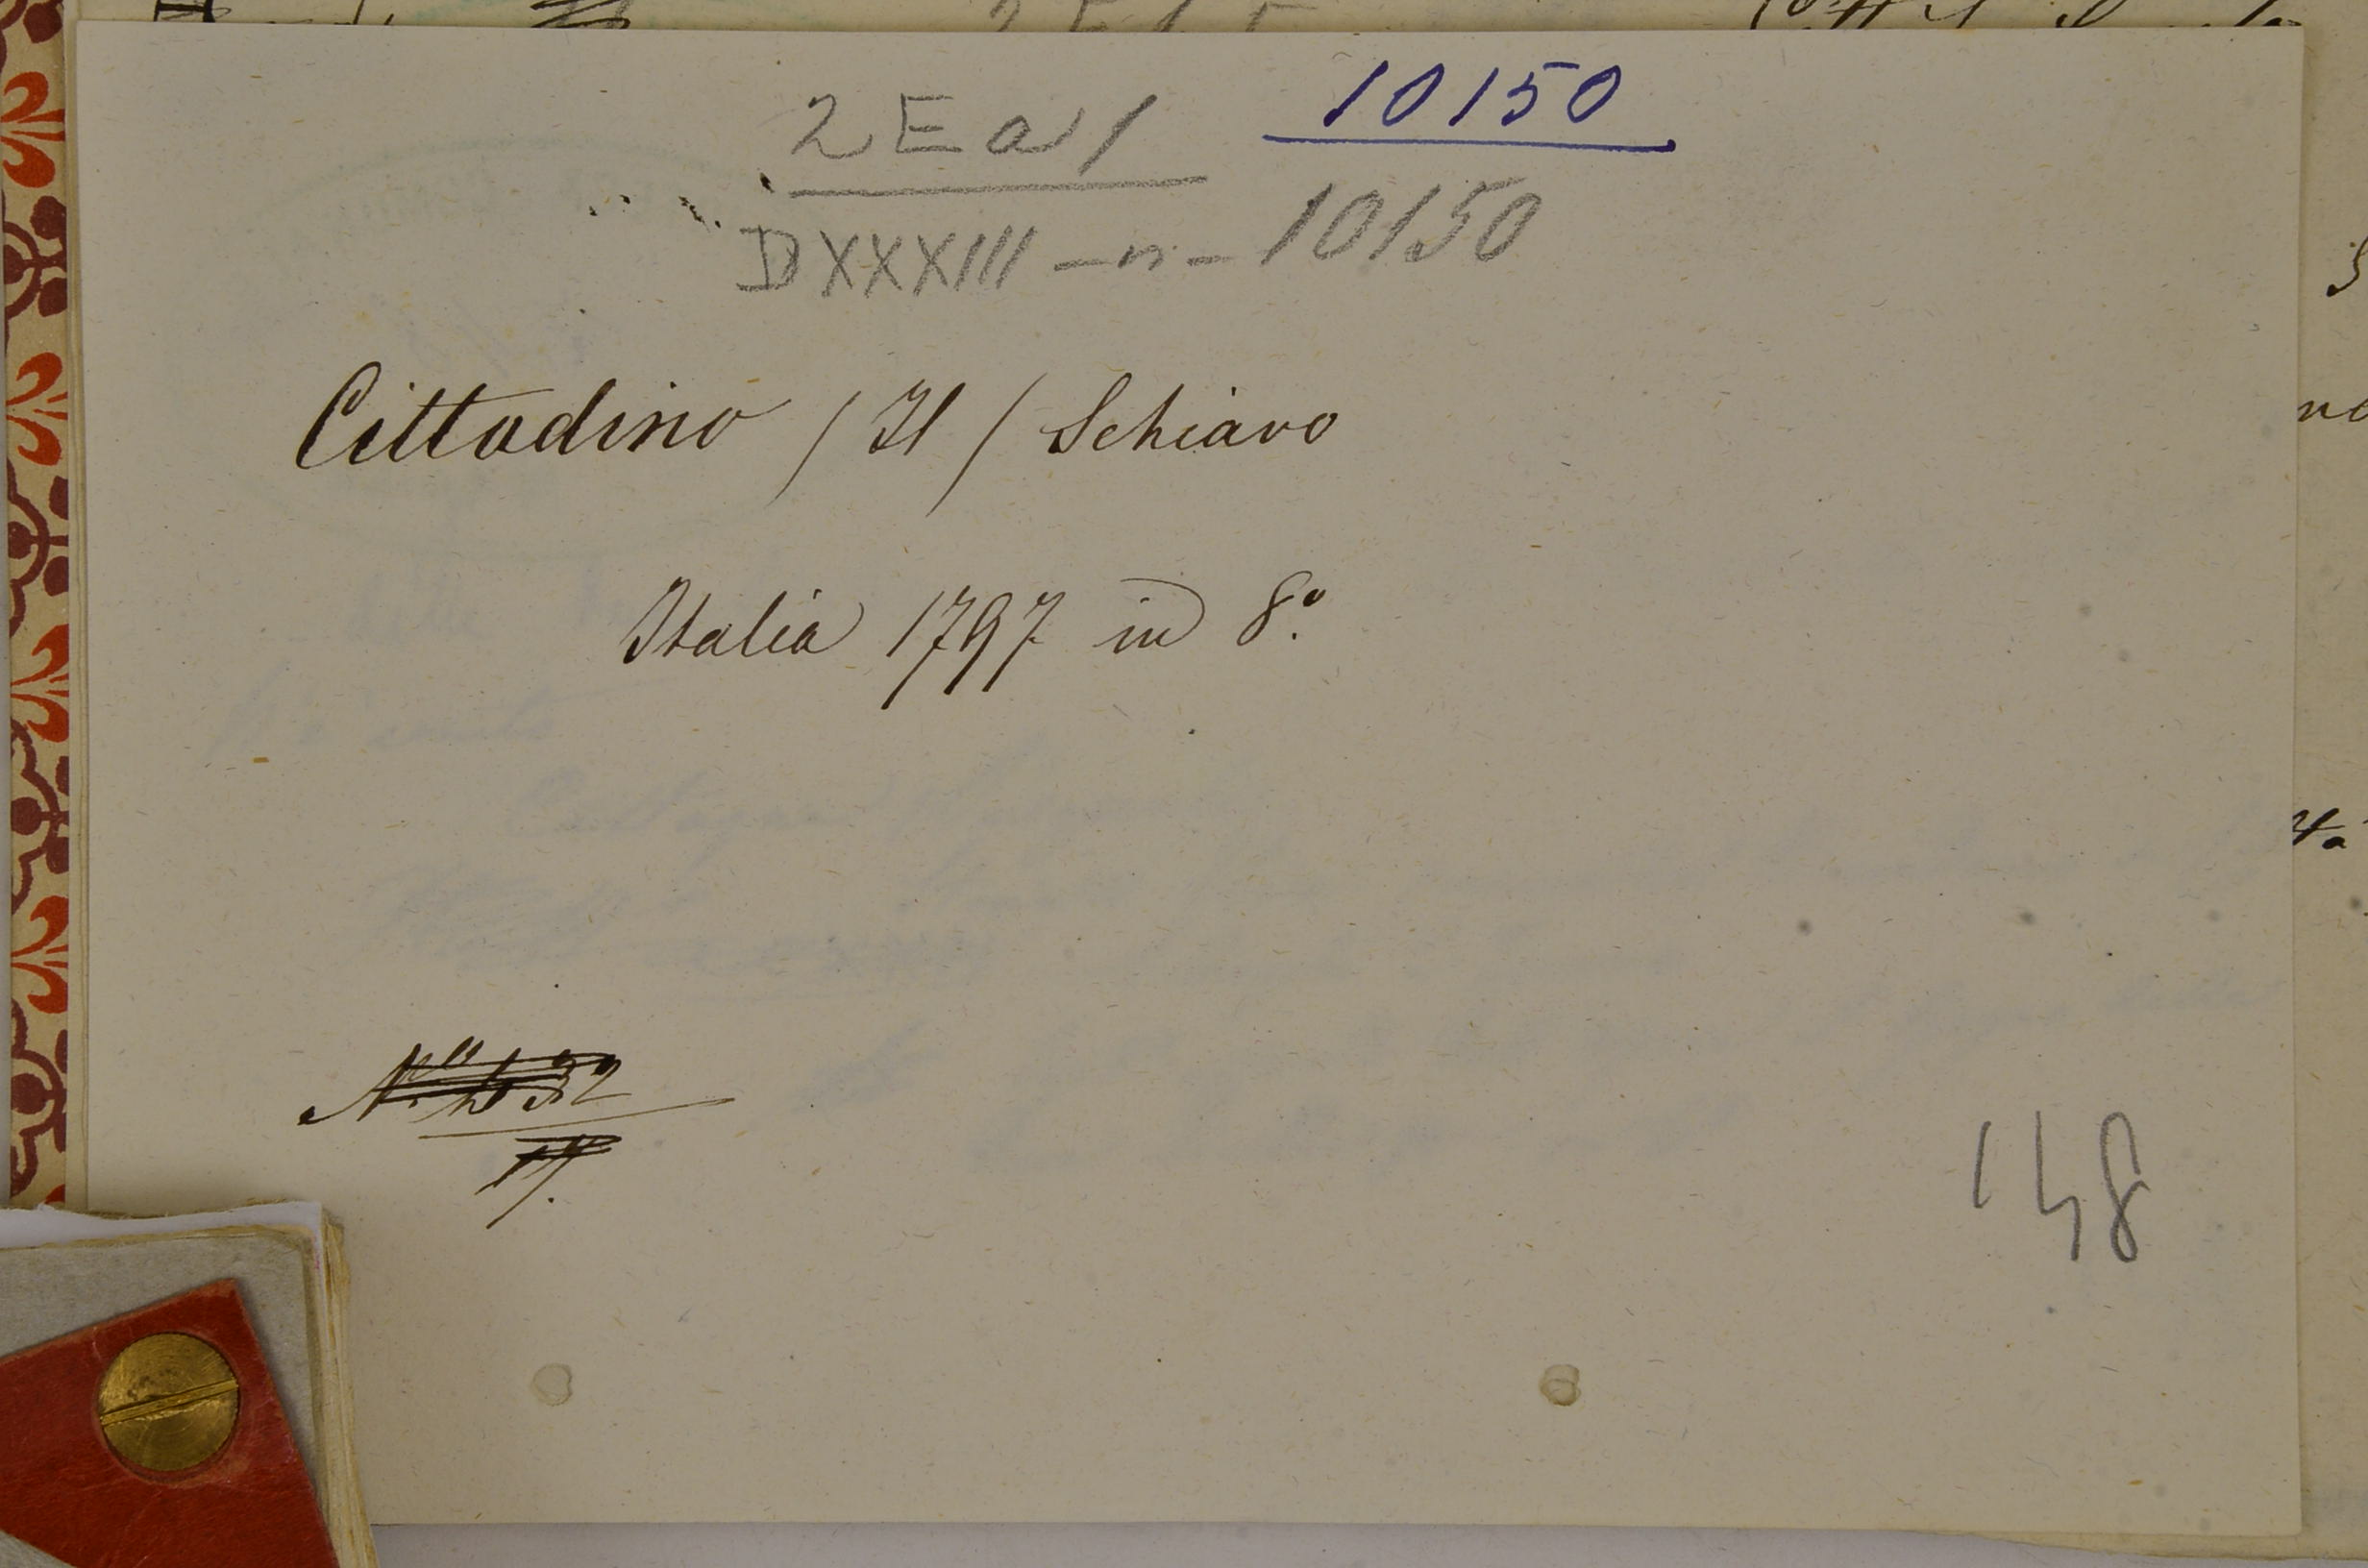 10150
D XXXIII - n - 10150
Cittadino / Il / Schiavo
Italia 1797 in 8º.
148